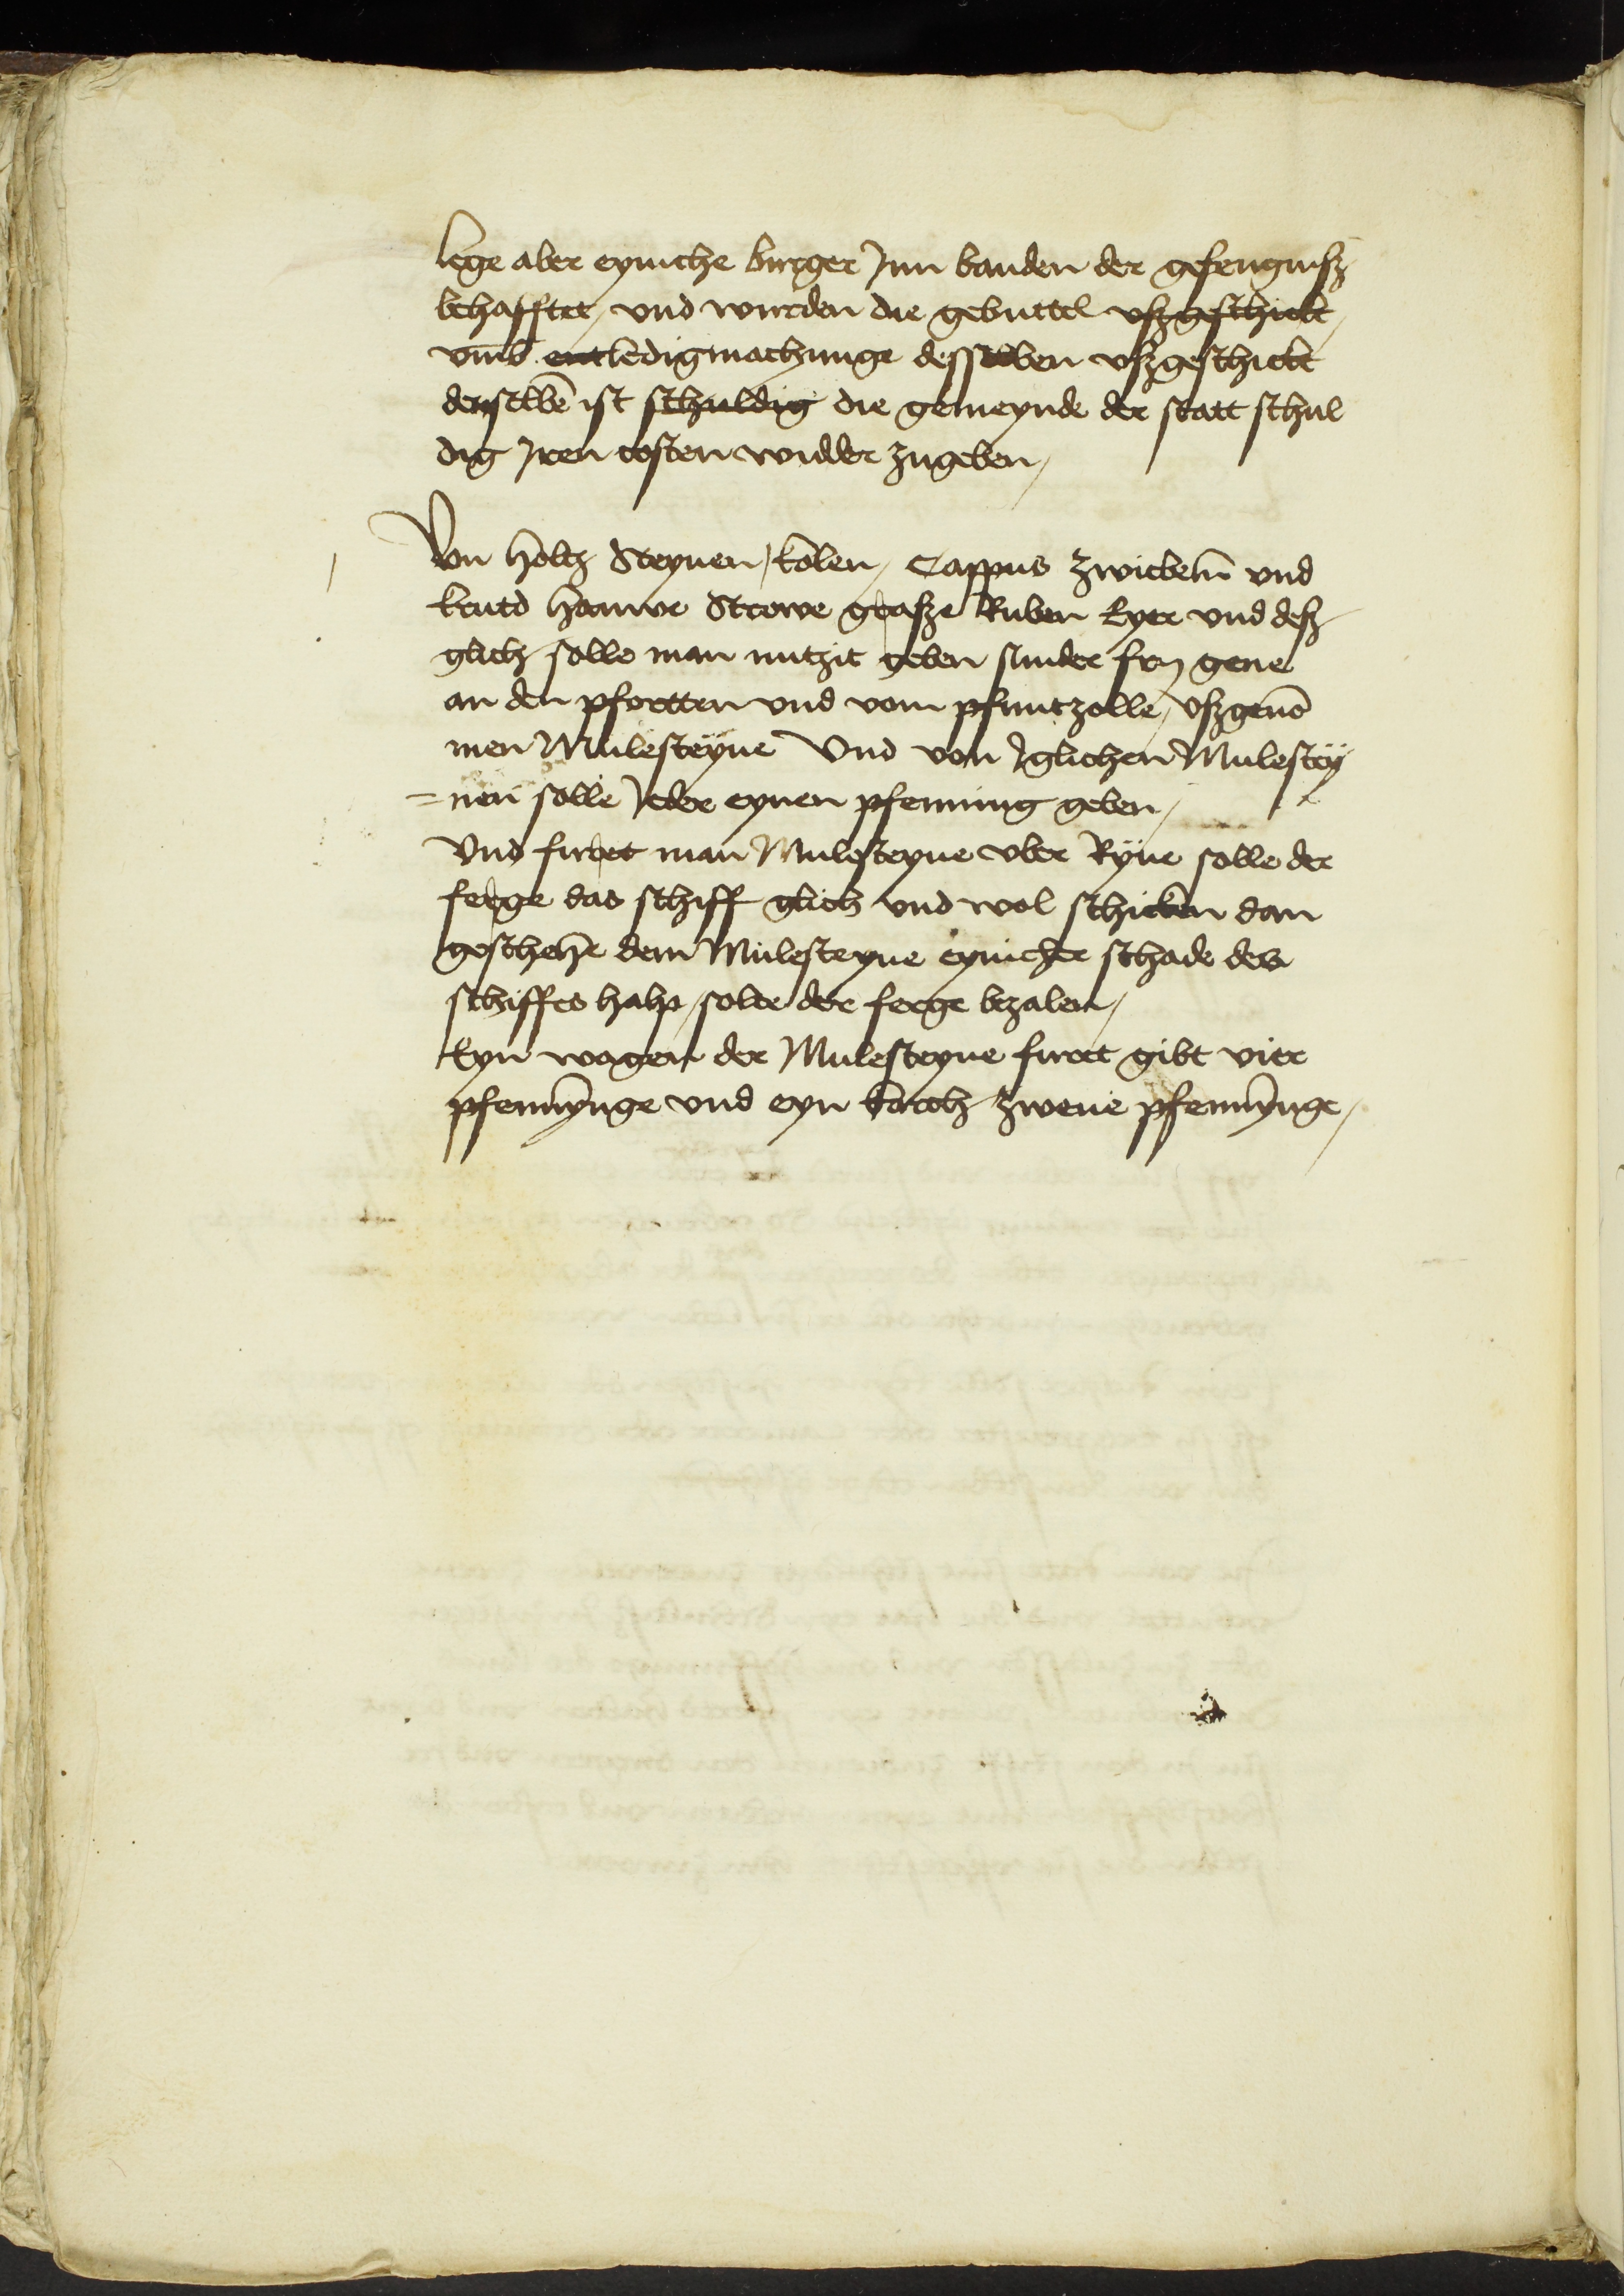 lege aber eyniche burger Jnn banden der gefengnisz
behafftet, vnd wurden die gebuttel vszgeschickt,
vmb entledigmachunge desselben vszgeschickt
denselbē ist schuldig die gemeynde der statt schul
dig Jren costen widder zugeben,
Von holtz Steynen, kolen, Cappus zwiebeln vnd
krutd hauwe Strowe grasze Ruben Eyer vnd desz
glich solle man nutzit geben sunder fry gene
an den pfortten vnd vom pfuntzolle, vszgenō
men Mulesteyne Vnd von Jglichen Mulestey
=nen solle Jeder eynen pfenning geben,
Vnd furet man Mulesteyne vber Ryne solle der
ferge das schiff glich vnd wol schicken dan
geschehe dem Mulesteyne eynicher schade des
schiffes halp, solte der ferge bezalen,
Eyn wagen der Mulesteyne furet gibt vier
pfennynge vnd eyn karch zwene pfennynge,